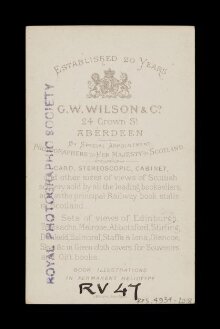 ESTABLISHED 20 YEARS
G.W. WILSON & Co.
24 Crown St.
ABERDEEN
By Special Appointment
Photographers to Her Majesty in Scotland
CARD, STEREOSCOPIC, CABINET,
and other sizes of views of Scottish
scenery sold by all the leading booksellers,
and on the principal Railway book stalls
in Scotland
Sets of views of Edinburgh,
Trossachs, Melrose, Abbotsford, Stirling,
Dunkeld, Balmoral, Staffa & Iona, Glencoe,
Skye &c in Green cloth covers for Souvenirs
or Gift books.
BOOK ILLUSTRATIONS
IN PERMANENT HELIOTYPE
RV 47
ROYAL PHOTOGRAPHIC SOCIETY